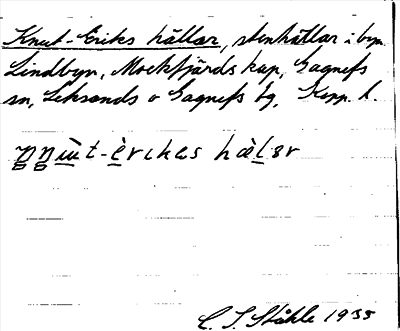 Knut-Eriks hällar, stenhällar i byn
Lindbyn, Mockfjärds kap, Gagnefs
sn, Leksands o Gagnefs tg, Kopp. l.
t-èrikas hàlar
C. I. Ståhle 1935